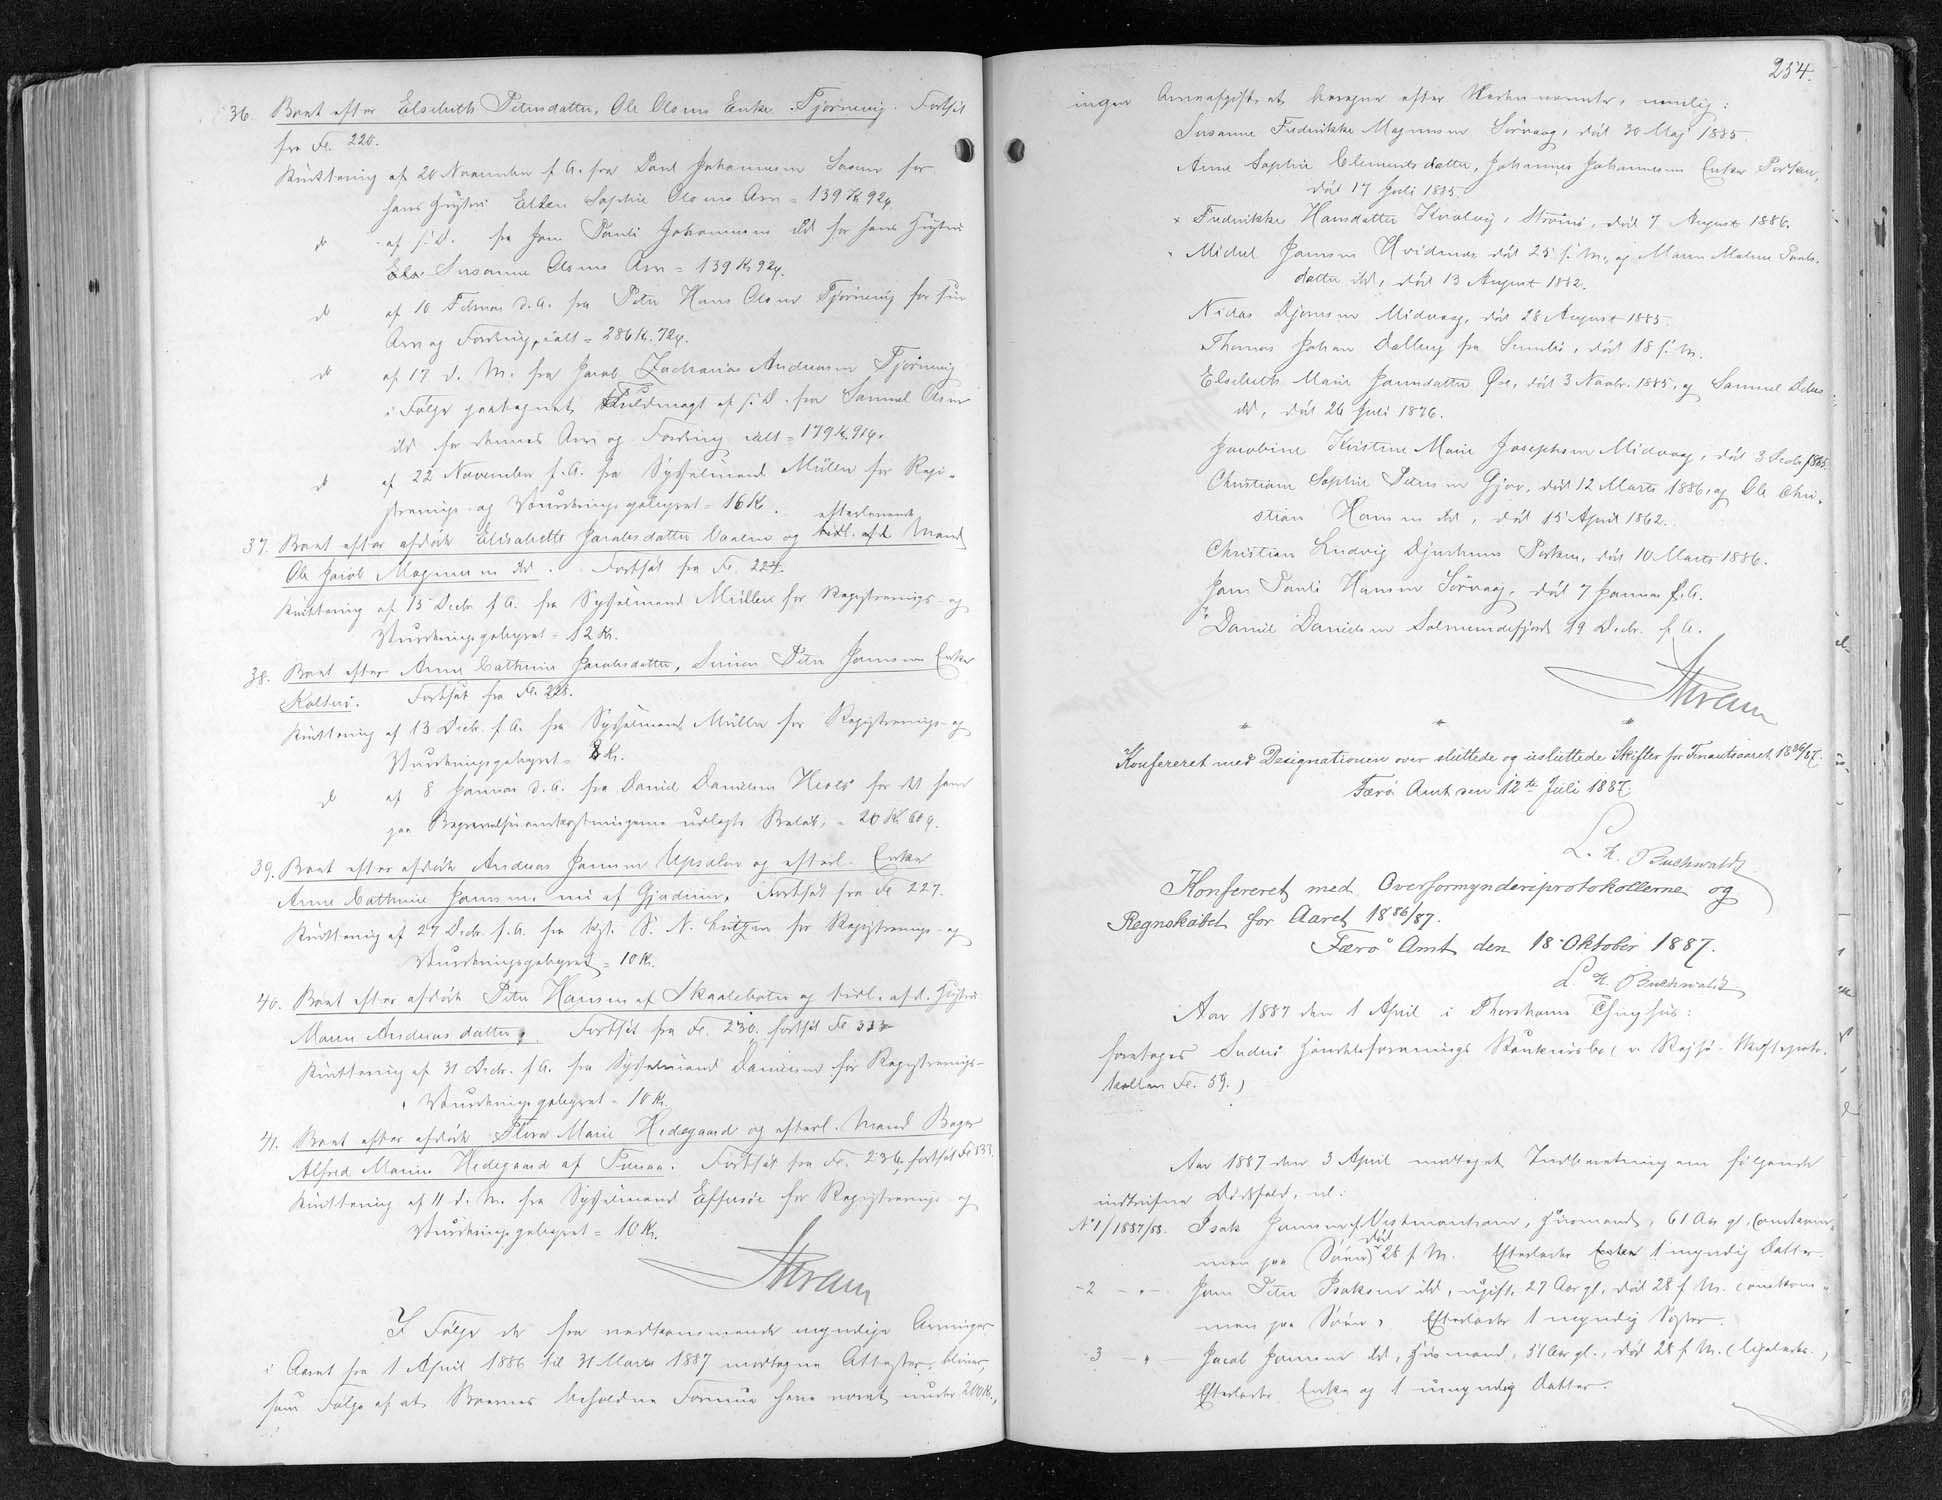 36. Boet efter Elsebeth Petersdatter, Ole Olsens Enke Tjørnevig. Fortsat
fra Fo. 220.
Kvittering af 20 November f. A. fra Poul Johannesen Saxen for
hans Hustru Ellen Sophie Olsens Arv = 139 Kr 92 ø.
do af s. D. fra Jens Pauli Johannesen ibd for hans Hustru
Susanne Olsens Arv = 139 Kr 92 ø.
do af 10 Februar d. A. fra Peter Hans Olsen Tjørnevig for sin
Arv og Fordring, ialt = 286 Kr. 72 ø.
do af 17 d. M. fra Jacob Zacharias Andreasen Tjørnevig
i Følge paategnet Fuldmagt af s. D. fra Samuel Olsen
ibd for dennes Arv og Fordring ialt = 179 Kr. 91 ø.
do af 22 November f. A. fra Sysselmand Müller for Regi-
strerings- og Vurderingsgebyret = 16 Kr.
efterlevende
37. Boet efter afdøde Elisabeth Jacobsdatter og tidl. afd. Mand
Ole Jacob Magnussen ibd. Fortsat fra Fo. 224.
Kvittering af 15 Decbr. f. A. fra Sysselmand Müller for Registrerings- og
Vurderingsgebyret = 12 Kr.
38. Boet efter Anne Cathrine Jacobsdatter, Simon Peter Jensens Enke
Kolter. Fortsat fra Fo. 228.
Kvittering af 13 Decbr. f. A. fra Sysselmand Müller for Registrerings- og
Vurderingsgebyret = 8 Kr.
do af 8 Januar d. A. fra Daniel Danielsen Hestø for det ham
paa Begravelsesomkostningerne udlagte Beløb, = 20 Kr 60 ø.
39. Boet efter afdøde Andreas Jensen Upsalen og efterl. Enke
Anne Cathrine Jensen, nu af Gjadrene. Fortsat fra Fo 227.
Kvittering af 27 Decbr. f. A. fra S. N. Lützen for Registrerings- og
Vurderingsgebyret = 10 Kr.
40. Boet efter afdøde Peter Hansen af Skaalebotn og tidl. afd. Hustru
Maren Andreasdatter. Fortsat fra Fo. 230, fortsat Fo 333
Kvittering af 31 Decbr. f. A. fra Sysselmand Danielsen for Registrerings-
Vurderingsgebyret = 10 Kr.
41. Boet efter afdøde Marie Hedegaard og efterl. Mand Bager
Alfred Marius Hedegaard af Fortsat fra Fo. 236, fortsat Fo 333.
Kvittering af 11 d. M. fra Sysselmand Effersøe for Registrerings- og
Vurderingsgebyret = 10 Kr.
I Følge de fra vedkommende myndige Arvinger
i Aaret fra 1 April 1886 til 31 Marts 1887 modtagne Attester, bliver,
som Følge af at Boernes beholdne Formue have været under 200 Kr.,
254.
ingen Arveafgift at beregne efter Nedennævnte, nemlig:
Susanne Fredrikke Magnussen Sørvaag, død 30 Maj 1885.
Anne Sophie Clementsdatter, Johannes Johannesens Enke Porkeri,
død 17 Juli 1885.
× Fredrikke Hansdatter Kvalvig, Strømø, død 7 August 1886.
Michel Jensen Hvidenæs død 25 s. M., og Maren Malene Pouls-
datter ibd, død 13 August 1882.
Niclas Djonesen Midvaag, død 28 August 1885.
Thomas Johan Dalberg fra Sumbø, død 18 s. M.
Elsebeth Marie Jensdatter Øre, død 3 Novbr. 1885, og Samuel
ibd, død 26 Juli 1876.
Jacobine Kristine Marie Josephsen Midvaag, død 3 Decbr 1885.
Christiane Sophie Petersen Gjov, død 12 Marts 1886, og Ole Chri-
stian Hansen ibd, død 15 April 1862.
Christian Ludvig Djurhuus Porkeri, død 10 Marts 1886.
Jens Pauli Hansen Sørvaag, død 7 Januar f. A.
Daniel Danielsen Solmundefjord 19 Decbr. f. A.
Konfereret med Designationen over sluttede og usluttede Skifter for Finantsaaret 1886/87.
Færø Amt den 12te Juli 1887.
L. E. Buchwaldt
Konfereret med Overformynderiprotokollerne og
Regnskabet for Aaret 1886/87.
Færø Amt den 18 Oktober 1887.
L. E. Buchwaldt
Aar 1887 den 1 April i Thorshavns Thinghus:
foretoges Suderø Handelsforenings Konkursbo (v. Rejse-Skifteproto-
kollen Fo. 59.)
Aar 1887 den 3 April modtaget Indberetning om følgende
indtrufne Dødsfald, nl:
No 1/1887/88. Isak Jensen Vestmanhavn, Husmand, 61 Aar gl. (omkom-
død
men paa Søen) 28 f. M. Efterlader Enke 1 myndig Datter.
-2 - " - Jens Peter Isaksen ibd, ugift, 27 Aar gl., død 28 f. M. (omkom-
men paa Søen). Efterlader 1 myndig Søster.
3 - " - Jacob Jensen ibd, Husmand, 31 Aar gl., død 28 f. M. (ligeledes.)
Efterlader Enke og 1 umyndig Datter.